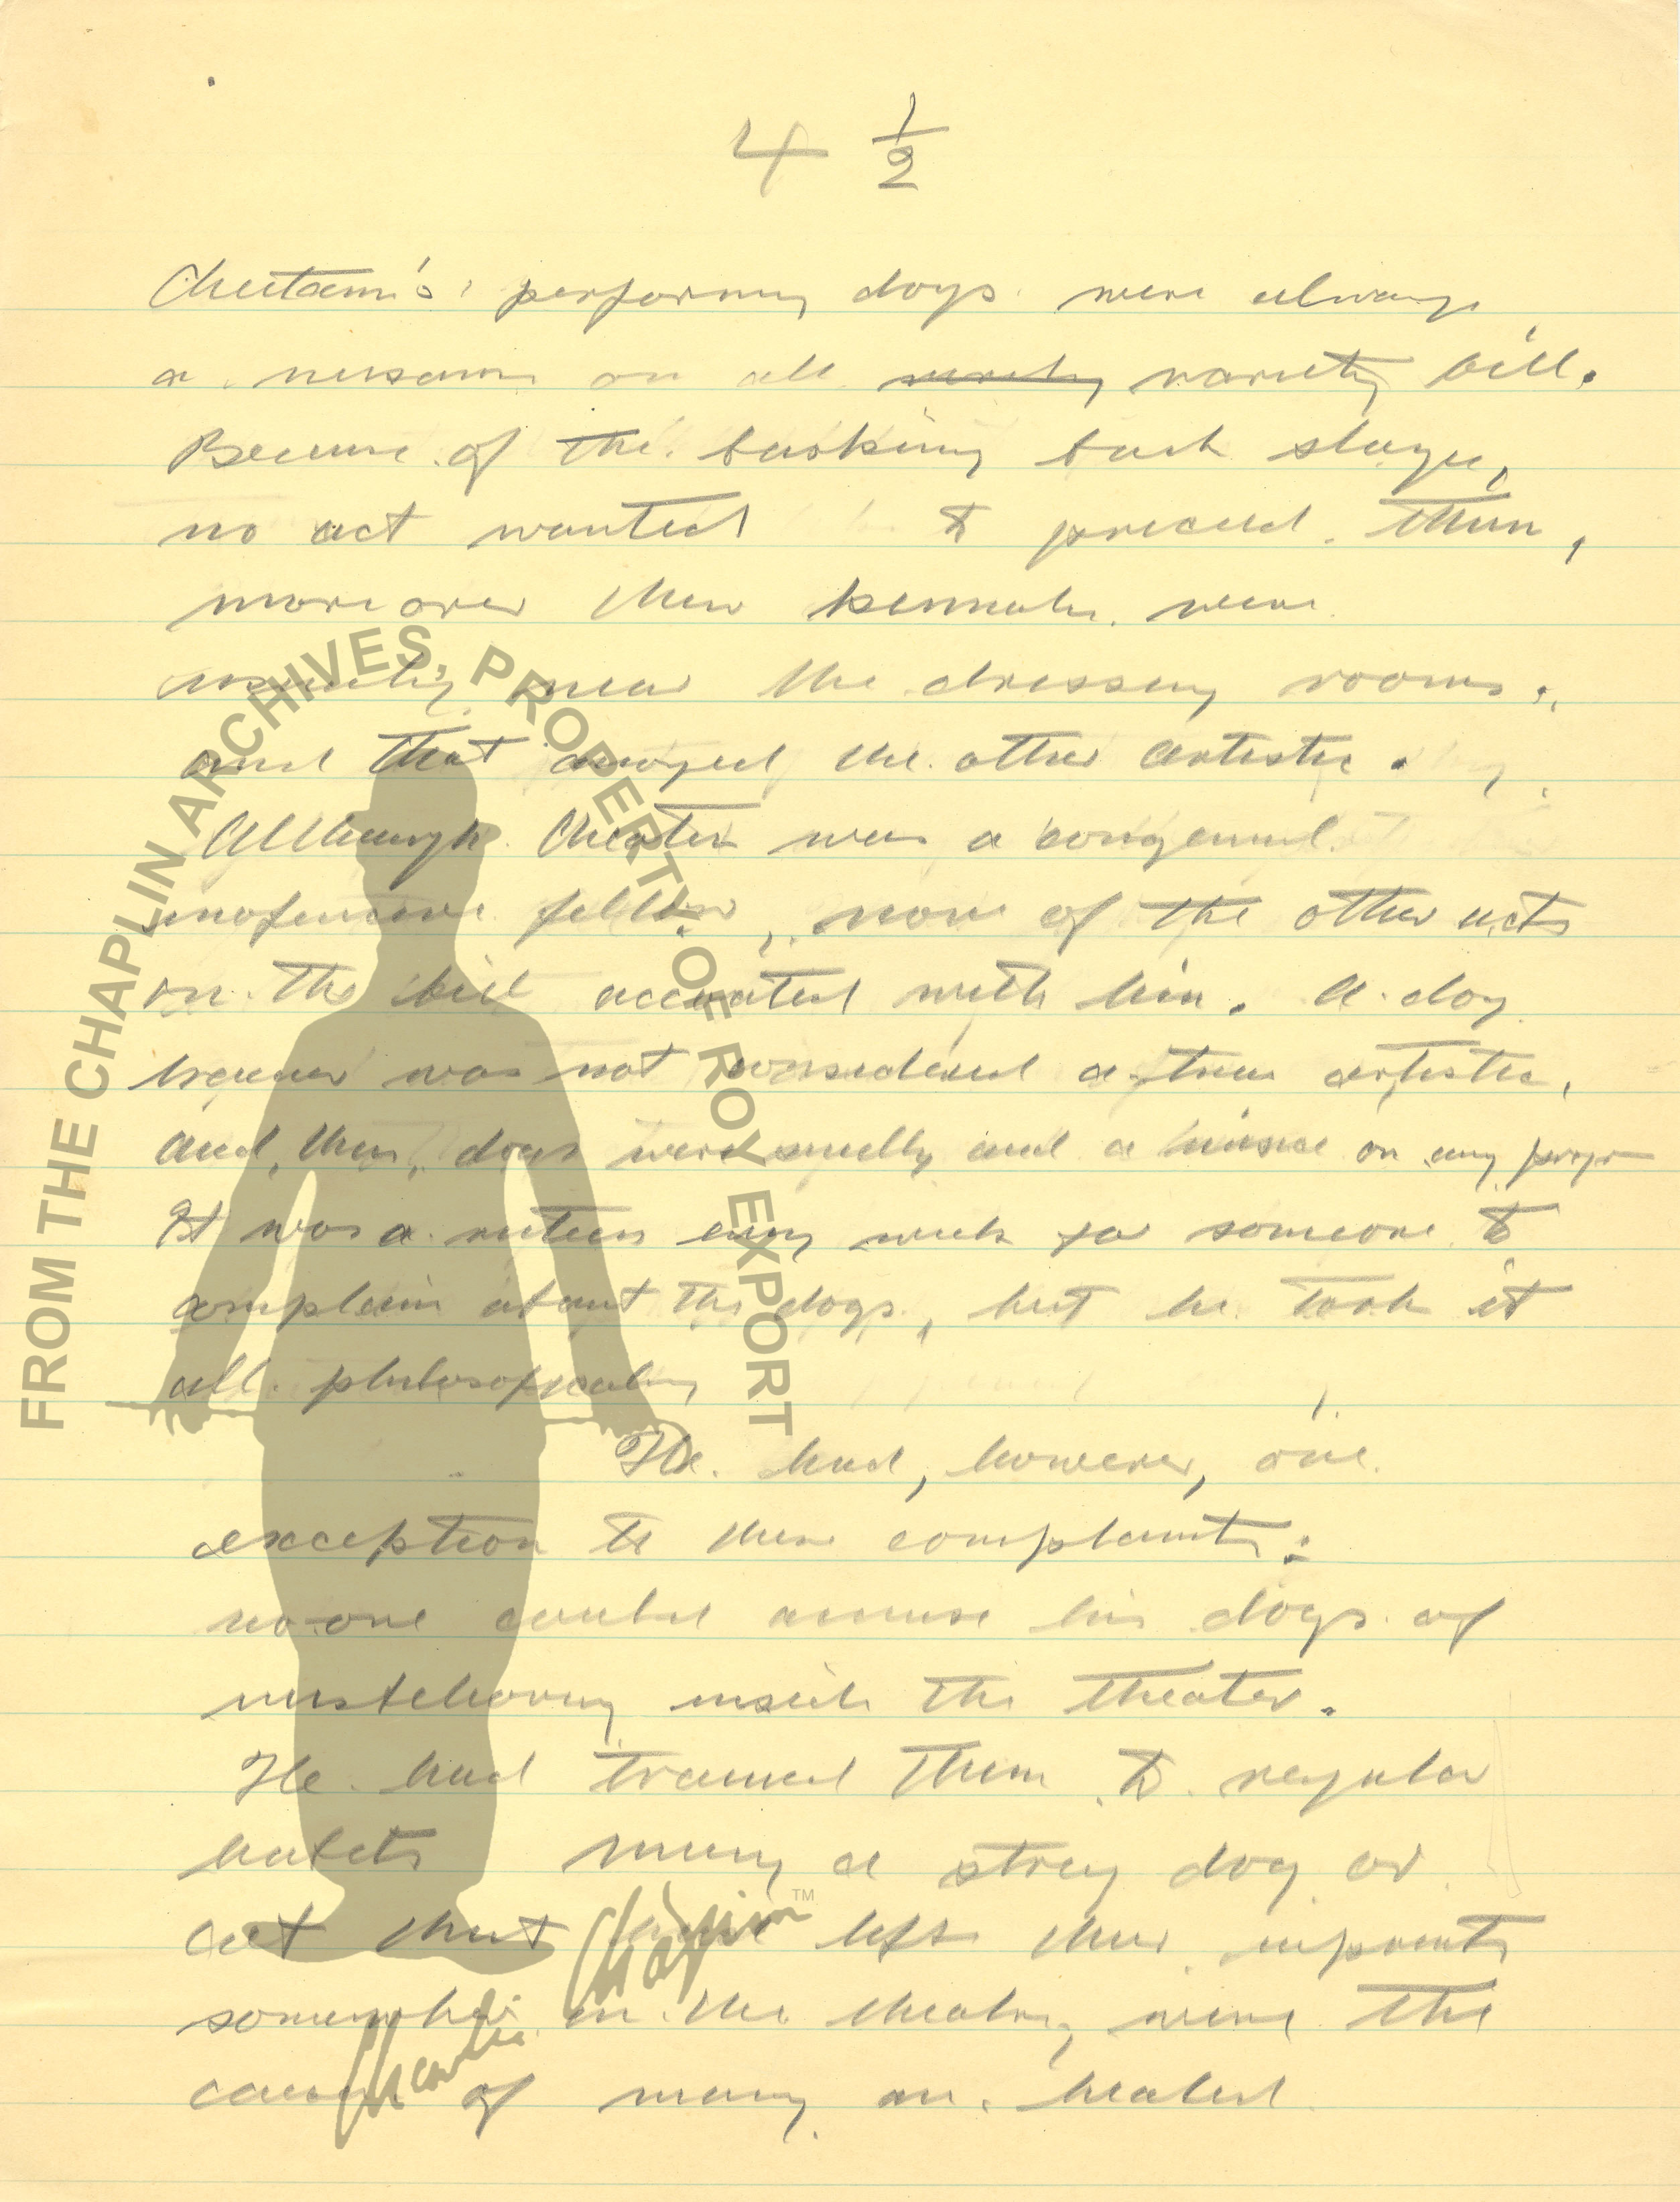 4 1/2
performing dogs were always
a nuisance on all variety bill.
Because of the barking back stage,
no act wanted to preceed them,
moreover their kennels were
usually near the dressing rooms,
and that annoyed the other artistes.
Although was a congenial
inofensive fellow, none of the other acts
on the bill with him. A dog
trainer was not considered a true artiste,
and, then, dogs were smelly and a on any
It was a every week for someone to
complain about the dogs, but he took it
all
He had, however, one
exception to their complaints:
no-one could accuse his dogs of
misbehaving inside the theater.
He had trained them to regular
habits many a stray dog or
cat that have left their
in the were the
cause of many an heated
FROM THE CHAPLIN ARCHIVES, PROPERTY OF ROY EXPORT
Charlie Chaplin™